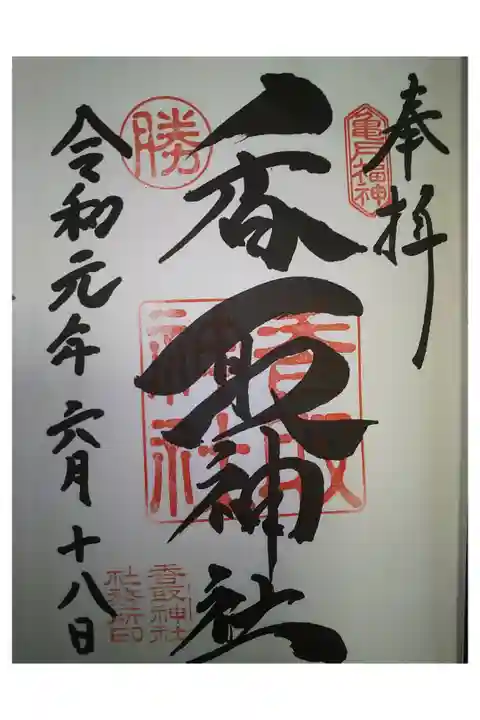 奉拝
亀戸福神
香取神社
香取神社
勝
令和元年六月十八日
香取神社
社務所印